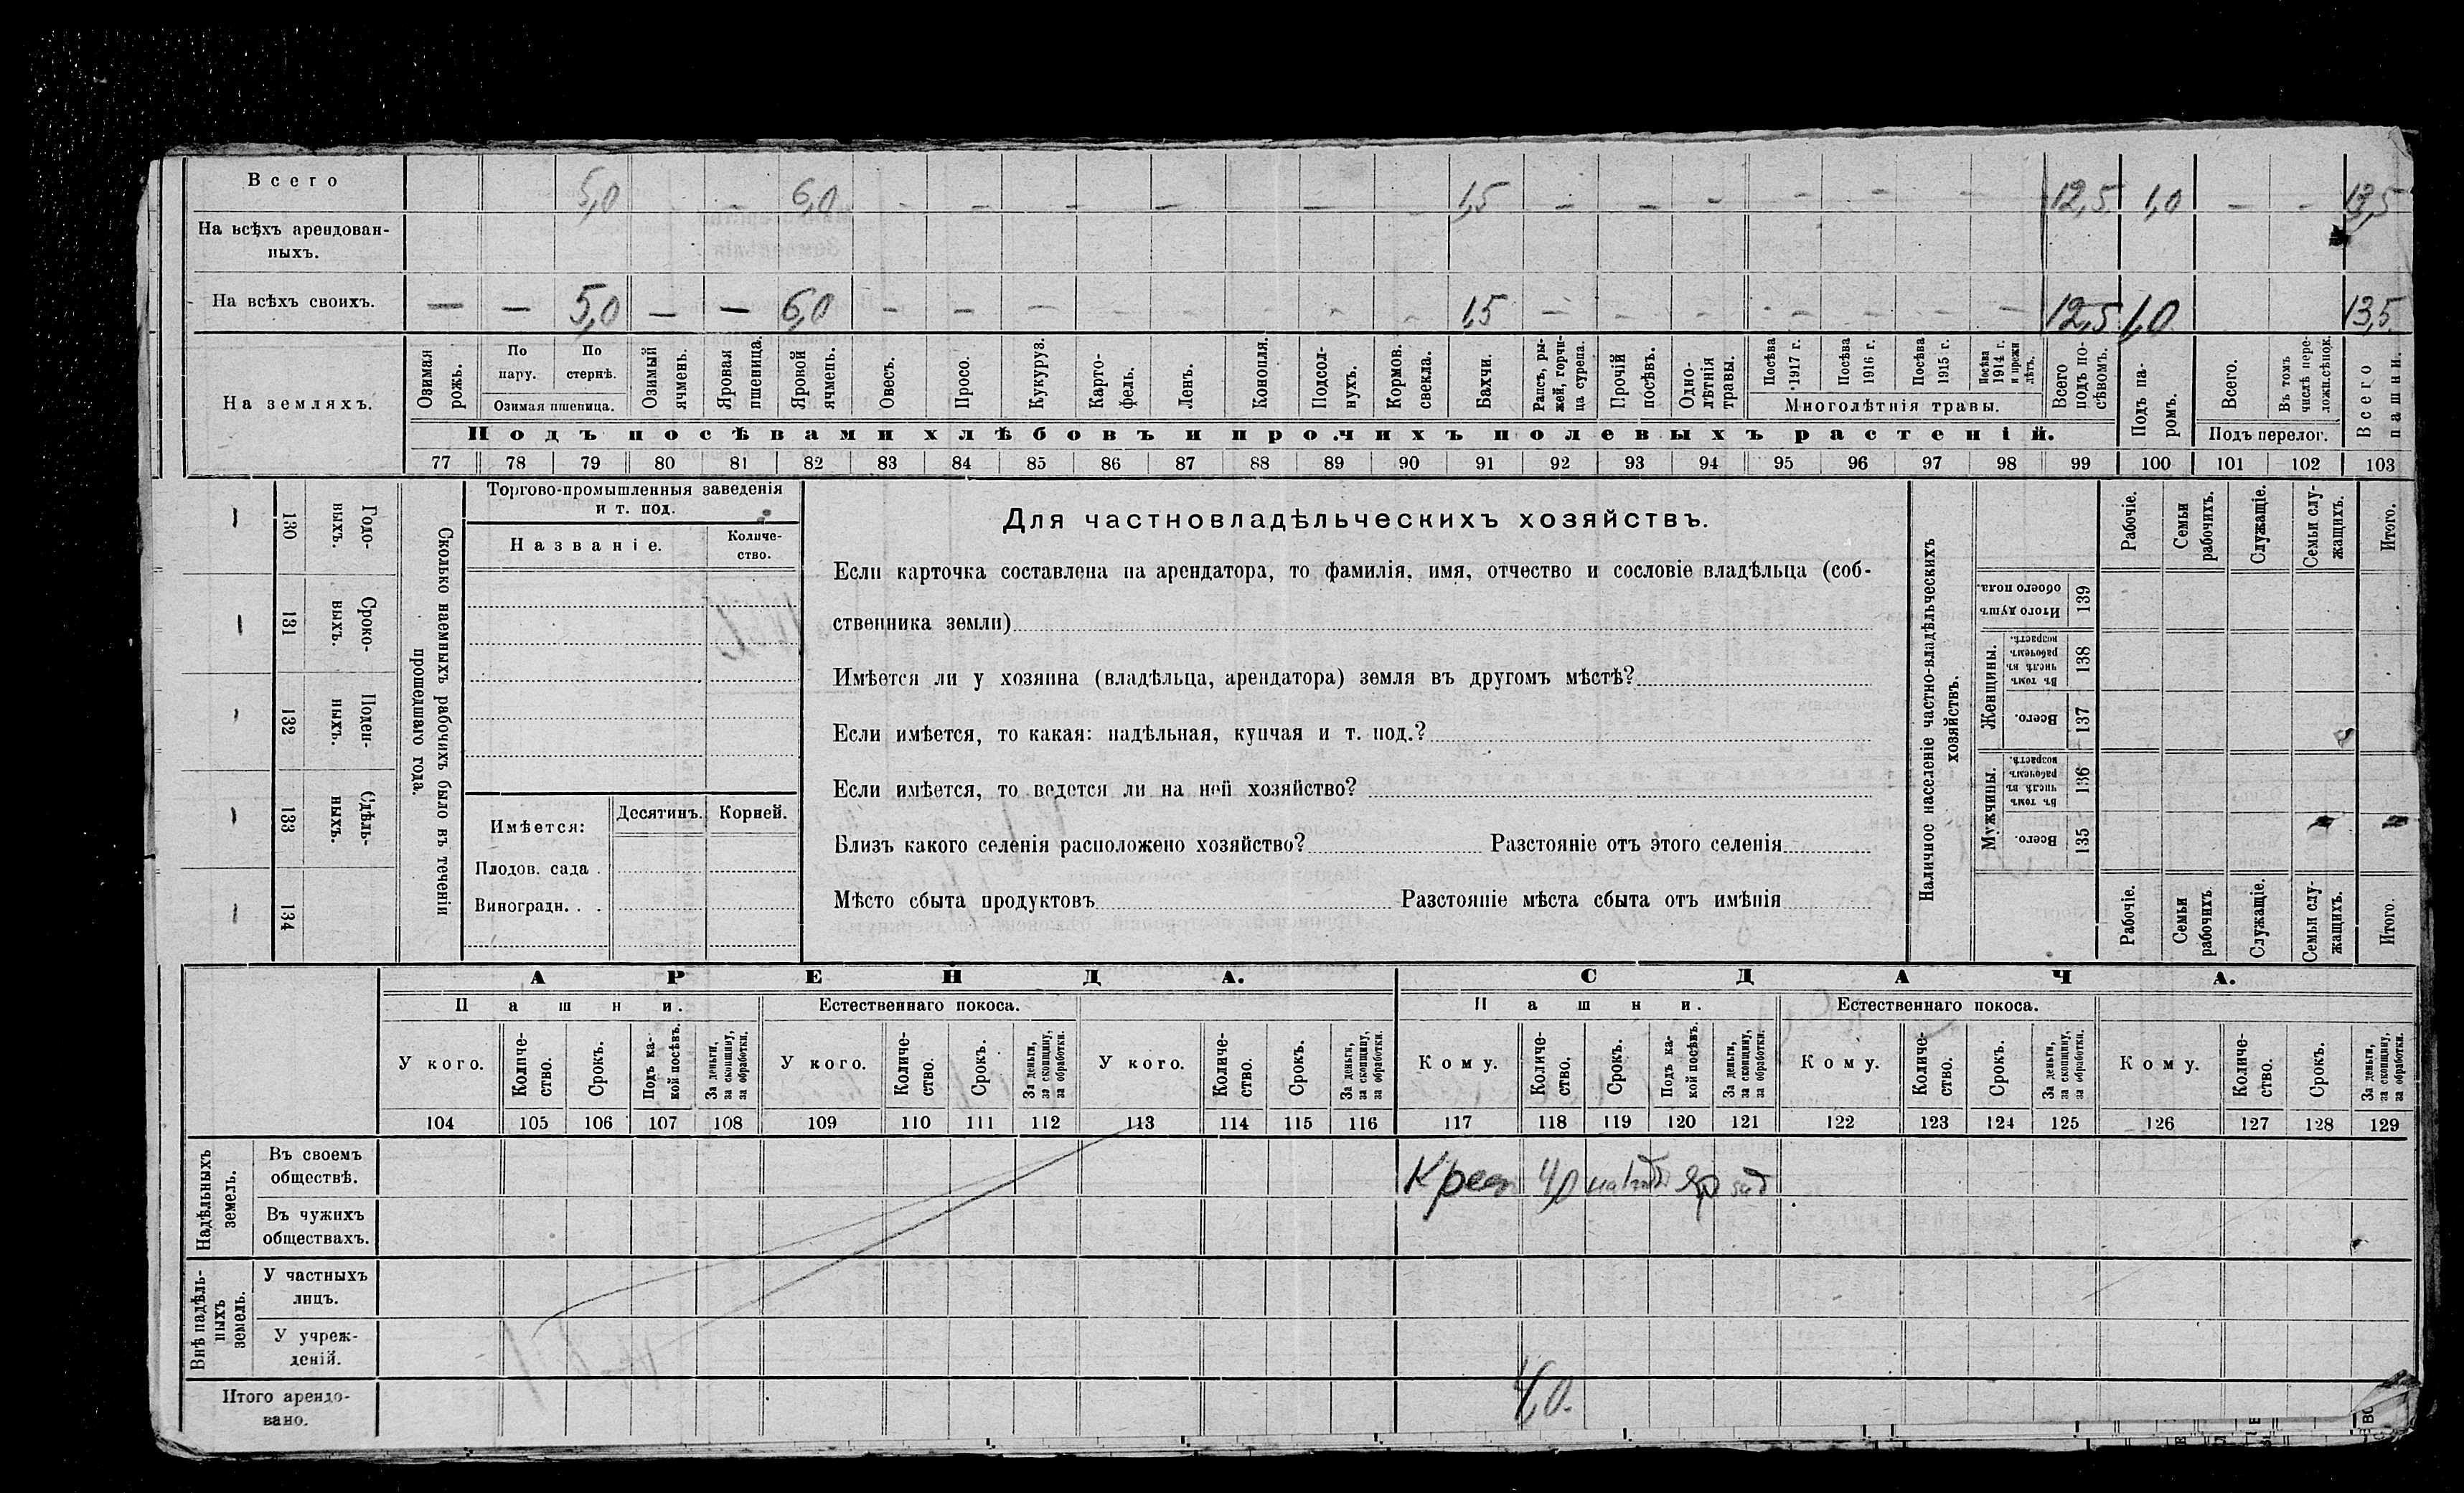 Всего 5,0 — 6,0 — — — — — — 1,5 — — — — — — 12,5 1,0 — — 13,5
На всѣхъ арендован-
ныхъ.
На всѣхъ своихъ. — — 5,0 — — 6,0 — — — — — — — — 1,5 — — — — — — — 12,5 1,0 13,5
На земляхъ.
Озимая рожь.
По пару.
По стернѣ.
Озимая пшеница.
Озимый ячмень.
Яровая пшеница.
Яровой ячмень.
Овесъ.
Просо.
Кукуруз.
Карто-
фель.
Ленъ.
Конопля.
Подсол-
нухъ.
Кормов. свекла.
Бахчи.
Рапсъ, ры-
жей, горчи-
ца сурепа.
Прочій посѣвъ.
Одно-
лѣтнія травы.
Посѣва 1917 г.
Посѣва 1916 г.
Посѣва 1915 г.
Посѣва 1914 г. и прежн лѣтъ.
Многолѣтнія травы.
Всего подъ по-
сѣвомъ.
Подъ па-
ромъ.
Всего.
Въ томъ числѣ пере-
ложн.сѣнок.
Подъ перелог.
Всего пашни.
Подъ посѣвами хлѣбовъ и прочихъ полевыхъ растеній.
77 78 79 80 81 82 83 84 85 86 87 88 89 90 91 92 93 94 95 96 97 98 99 100 101 102 103
Сколько наемныхъ рабочихъ было въ теченіи
прошедшаго года.
Годо-
выхъ.
130 —
Сроко-
выхъ.
131 —
Поден-
ныхъ.
132 —
Сдѣль-
ныхъ.
133 —
134 —
Торгово-промышленныя заведенія
и т. под.
Названіе.
Количе-
ство.
Имѣется: Десятинъ. Корней.
Плодов. сада .
Виноградн. . .
Для частновладѣльческихъ хозяйствъ.
Если карточка составлена на арендатора, то фамилія, имя, отчество и сословіе владѣльца (соб-
ственника земли)
Имѣется ли у хозяина (владѣльца, арендатора) земля въ другомъ мѣстѣ?
Если имѣется, то какая: надѣльная, купчая и т. под.?
Если имѣется, то ведется ли на ней хозяйство?
Близъ какого селенія расположено хозяйство? Разстояніе отъ этого селенія
Мѣсто сбыта продуктовъ Разстояніе мѣста сбыта отъ имѣнія
Наличное населеніе частно-владѣльческихъ
хозяйствъ.
Рабочіе.
Семьи рабочихъ.
Служащіе.
Семьи слу-
жащихъ.
Итого.
Итого душъ обоего пола.
139
Женщины.
Въ томъ числѣ въ рабочемъ возрастѣ.
138
Всего.
137
Мужчины.
Въ томъ числѣ въ рабочемъ возрастѣ.
136
Всего.
135
Рабочіе.
Семьи рабочихъ.
Служащіе.
Семьи слу-
жащихъ.
Итого.
АРЕНДА. СДАЧА.
Пашни. Естественнаго покоса. Пашни. Естественнаго покоса.
У кого.
Количе-
ство.
Срокъ.
Подъ ка-
кой посѣвъ.
За деньги, за скопщину, за обработки.
У кого.
Количе-
ство.
Срокъ.
За деньги, за скопщину, за обработки.
У кого.
Количе-
ство.
Срокъ.
За деньги, за скопщину, за обработки.
Кому.
Количе-
ство.
Срокъ.
Подъ ка-
кой посѣвъ.
За деньги, за скопщину, за обработки.
Кому.
Количе-
ство.
Срокъ.
За деньги, за скопщину, за обработки.
Кому.
Количе-
ство.
Срокъ.
За деньги, за скопщину, за обработки.
104 105 106 107 108 109 110 111 112 113 114 115 116 117 118 119 120 121 122 123 124 125 126 127 128 129
Надѣльныхъ земель.
Въ своемъ
обществѣ. 4,0
Въ чужихъ
обществахъ.
Внѣ надѣль-
ныхъ
земель.
У частныхъ
лицъ.
У учреж-
деній.
Итого арендо-
вано. 4,0.